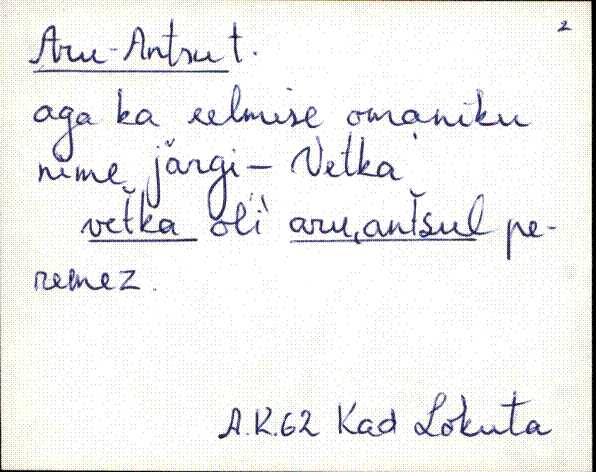 2
Aru-Antsu t.
aga ka eelmise omaniku
nime järgi – Vetka
vetka oli aru,antšul pe-
remez.
A.K.62 Kad Lokuta